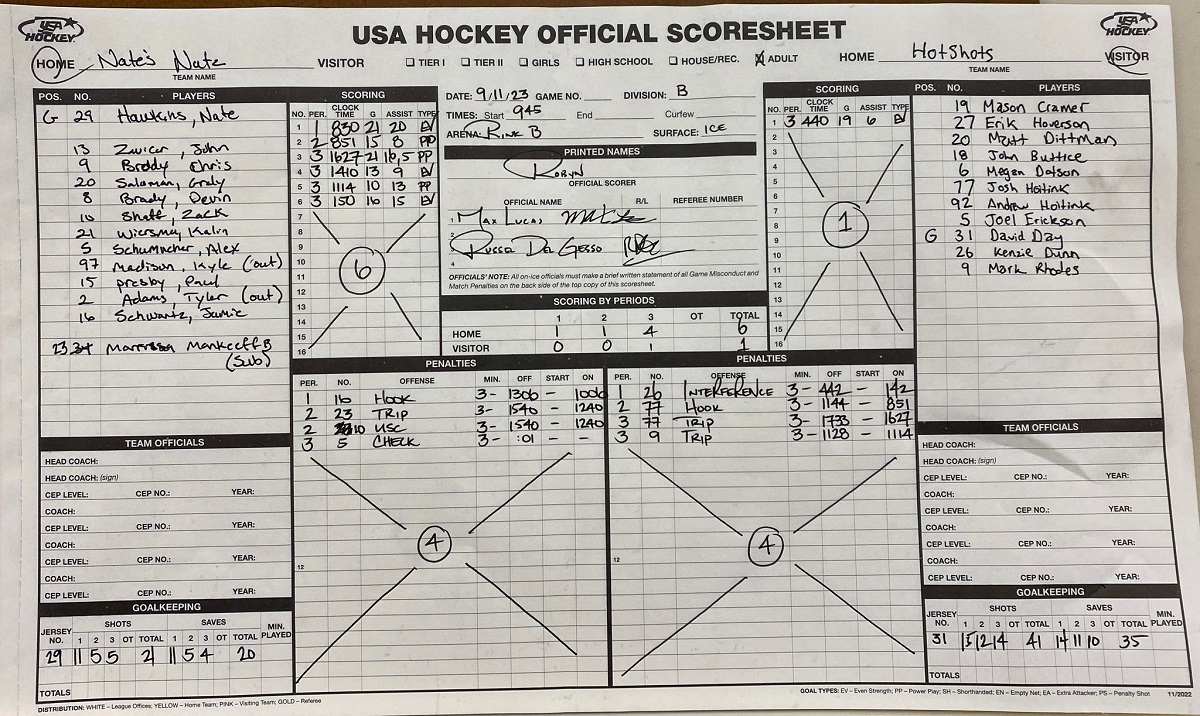 USA HOCKEY
USA HOCKEY OFFICIAL SCORESHEET
USA HOCKEY
HOME Nate's Nate VISITOR
TEAM NAME
☐ TIER I ☐ TIER II ☐ GIRLS ☐ HIGH SCHOOL ☐ HOUSE/REC. ☒ ADULT
HOME HotShots VISITOR
TEAM NAME
POS. NO. PLAYERS
G 29 Hawkins, Nate
13 Zwicer, John
9 Broddy Chris
20 Salaman, Grady
8 Brady, Devin
10 Shaff, Zack
21 Wiersma, Kalin
5 Schumacher, Alex
97 Madison, Kyle (out)
15 presby, Paul
2 Adams, Tyler (out)
16 Schwantz, Jamie
23 Mankeeff B
(Sub)
SCORING
NO. PER. CLOCK TIME G ASSIST TYPE
1 1 830 21 20 EV
2 2 851 15 8 PP
3 3 1627 21 16,5 PP
4 3 1410 13 9 EV
5 3 1114 10 13 PP
6 3 150 16 15 EV
7
8
9
10
11
12
13
14
15
16
6
DATE: 9/11/23 GAME NO. DIVISION: B
TIMES: Start 945 End Curfew
ARENA: Rink B SURFACE: ICE
PRINTED NAMES
Robyn
OFFICIAL SCORER
OFFICIAL NAME R/L REFEREE NUMBER
1 Max Lucas
2
3 Russa Del Gesso
4
OFFICIALS' NOTE: All on-ice officials must make a brief written statement of all Game Misconduct and
Match Penalties on the back side of the top copy of this scoresheet.
SCORING BY PERIODS
1 2 3 OT TOTAL
HOME 1 1 4 6
VISITOR 0 0 1 1
SCORING
NO. PER. CLOCK TIME G ASSIST TYPE
1 3 440 19 6 EV
2
3
4
5
6
7
8
9
10
11
12
13
14
15
16
1
POS. NO. PLAYERS
19 Mason Cramer
27 Erik Hoverson
20 Matt Dittman
18 John Buttice
6 Megan Dotson
77 Josh Hoitink
92 Andrew Hoitink
5 Joel Erickson
G 31 David Day
26 Kenzie Dunn
9 Mark Rhodes
PENALTIES
PER. NO. OFFENSE MIN. OFF START ON
1 16 HOOK 3- 1306 - 1006
2 23 TRIP 3- 1540 - 1240
2 10 USC 3- 1540 - 1240
3 5 CHECK 3- :01 - -
4
12
PENALTIES
PER. NO. OFFENSE MIN. OFF START ON
1 26 INTERFERENCE 3- 442 - 142
2 77 HOOK 3- 1144 - 851
3 77 TRIP 3- 1733 - 1627
3 9 TRIP 3- 1128 - 1114
4
12
TEAM OFFICIALS
HEAD COACH:
HEAD COACH: (sign)
CEP LEVEL: CEP NO.: YEAR:
COACH:
CEP LEVEL: CEP NO.: YEAR:
COACH:
CEP LEVEL: CEP NO.: YEAR:
COACH:
CEP LEVEL: CEP NO.: YEAR:
GOALKEEPING
JERSEY NO. SHOTS 1 2 3 OT TOTAL SAVES 1 2 3 OT TOTAL MIN. PLAYED
29 11 5 5 21 11 5 4 20
TOTALS
TEAM OFFICIALS
HEAD COACH:
HEAD COACH: (sign)
CEP LEVEL: CEP NO.: YEAR:
COACH:
CEP LEVEL: CEP NO.: YEAR:
COACH:
CEP LEVEL: CEP NO.: YEAR:
COACH:
CEP LEVEL: CEP NO.: YEAR:
GOALKEEPING
JERSEY NO. SHOTS 1 2 3 OT TOTAL SAVES 1 2 3 OT TOTAL MIN. PLAYED
31 15 12 14 41 14 11 10 35
TOTALS
DISTRIBUTION: WHITE – League Offices; YELLOW – Home Team; PINK – Visiting Team; GOLD – Referee
GOAL TYPES: EV – Even Strength; PP – Power Play; SH – Shorthanded; EN – Empty Net; EA – Extra Attacker; PS – Penalty Shot 11/2022